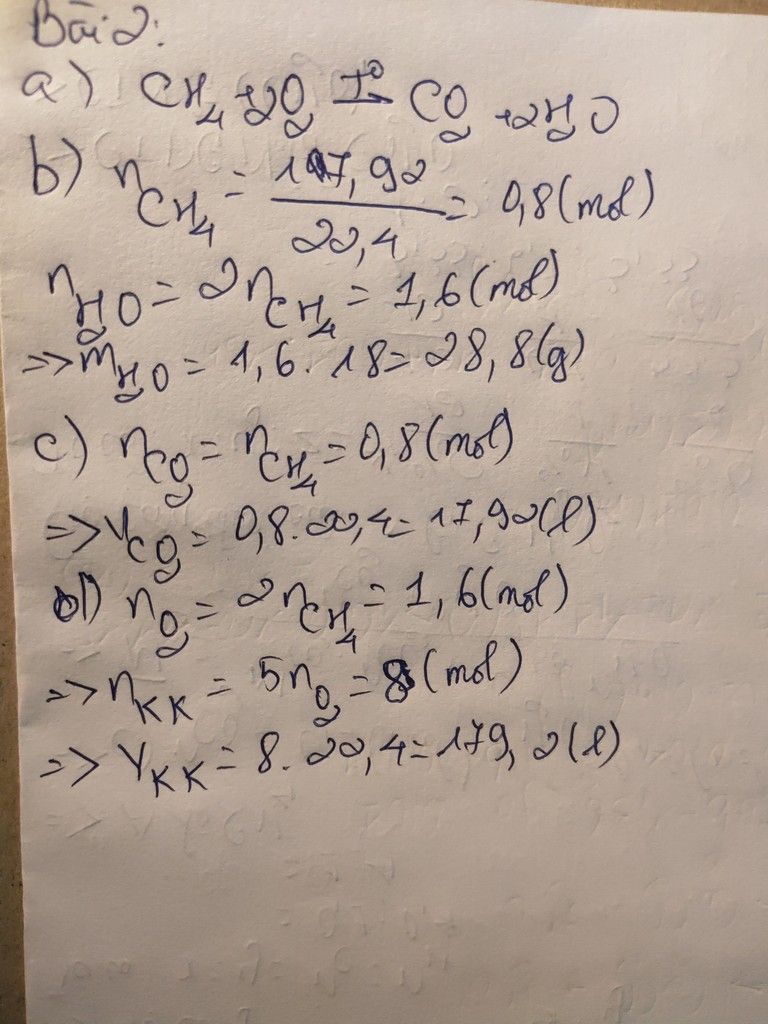 Bài 2:
a) CH₄ + 2O₂ –t⁰→ CO₂ + 2H₂O
b) nCH₄ = 17,92 / 22,4 = 0,8 (mol)
nH₂O = 2nCH₄ = 1,6 (mol)
=> mH₂O = 1,6 . 18 = 28,8 (g)
c) nCO₂ = nCH₄ = 0,8 (mol)
=> VCO₂ = 0,8 . 22,4 = 17,92 (l)
d) nO₂ = 2nCH₄ = 1,6 (mol)
=> nKK = 5nO₂ = 8 (mol)
=> VKK = 8 . 22,4 = 179,2 (l)